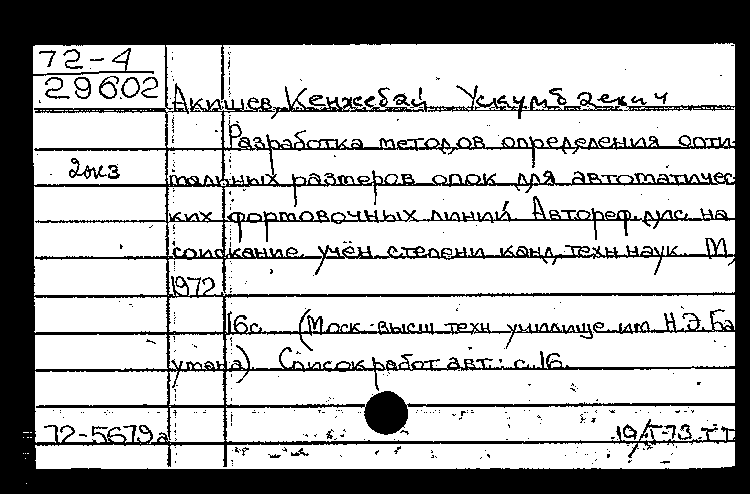 72-4
29602
Акишев, Кенжебай Ускумбаевич
Разработка методов определения опти-
2экз
мальных размеров опок для автоматичес
ких формовочных линий. Автореф. дис. на
соискание учён. степени канд. техн. наук. М.,
1972.
16 с. (Моск. высш. техн. училище им. Н.Э. Ба
умана). Список работ авт.: с. 16.
72-5679а
19/I-73 т.т.